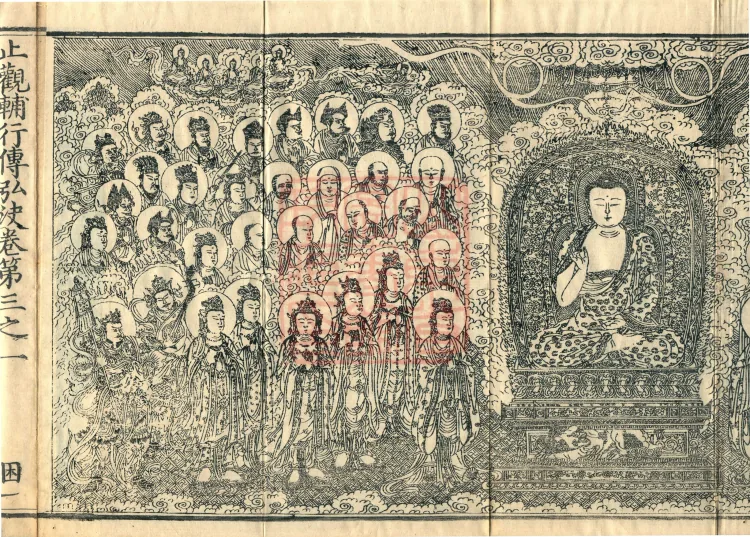 止觀輔行傳弘決卷第三之一
困一